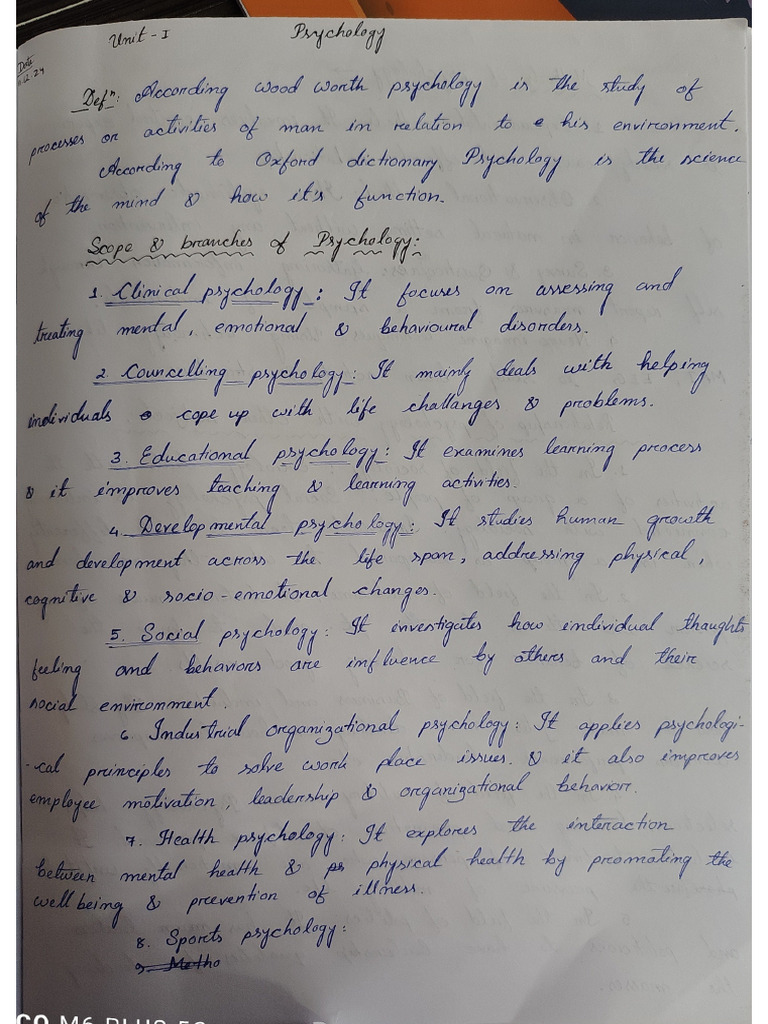 Unit - I Psychology
Date
Defⁿ: According wood worth psychology is the study of
processes or activities of man in relation to his environment.
According to Oxford dictionary, Psychology is the science
of the mind & how it's function.
Scope & branches of Psychology:
1. Clinical psychology: It focuses on assessing and
treating mental, emotional & behavioural disorders.
2. Councelling psychology: It mainly deals with helping
individuals cope up with life challanges & problems.
3. Educational psychology: It examines learning process
& it improves teaching & learning activities.
4. Developmental psychology: It studies human growth
and development across the life span, addressing physical,
cognitive & socio-emotional changes.
5. Social psychology: It investigates how individual thaughts
feeling and behaviors are influence by others and their
social environment.
6. Industrial organizational psychology: It applies psychologi-
-cal principles to solve work place issues. & it also improves
employee motivation, leadership & organizational behavior.
7. Health psychology: It explores the interaction
between mental health & ps physical health by promoting the
well being & prevention of illness.
8. Sports psychology:
9. Metho